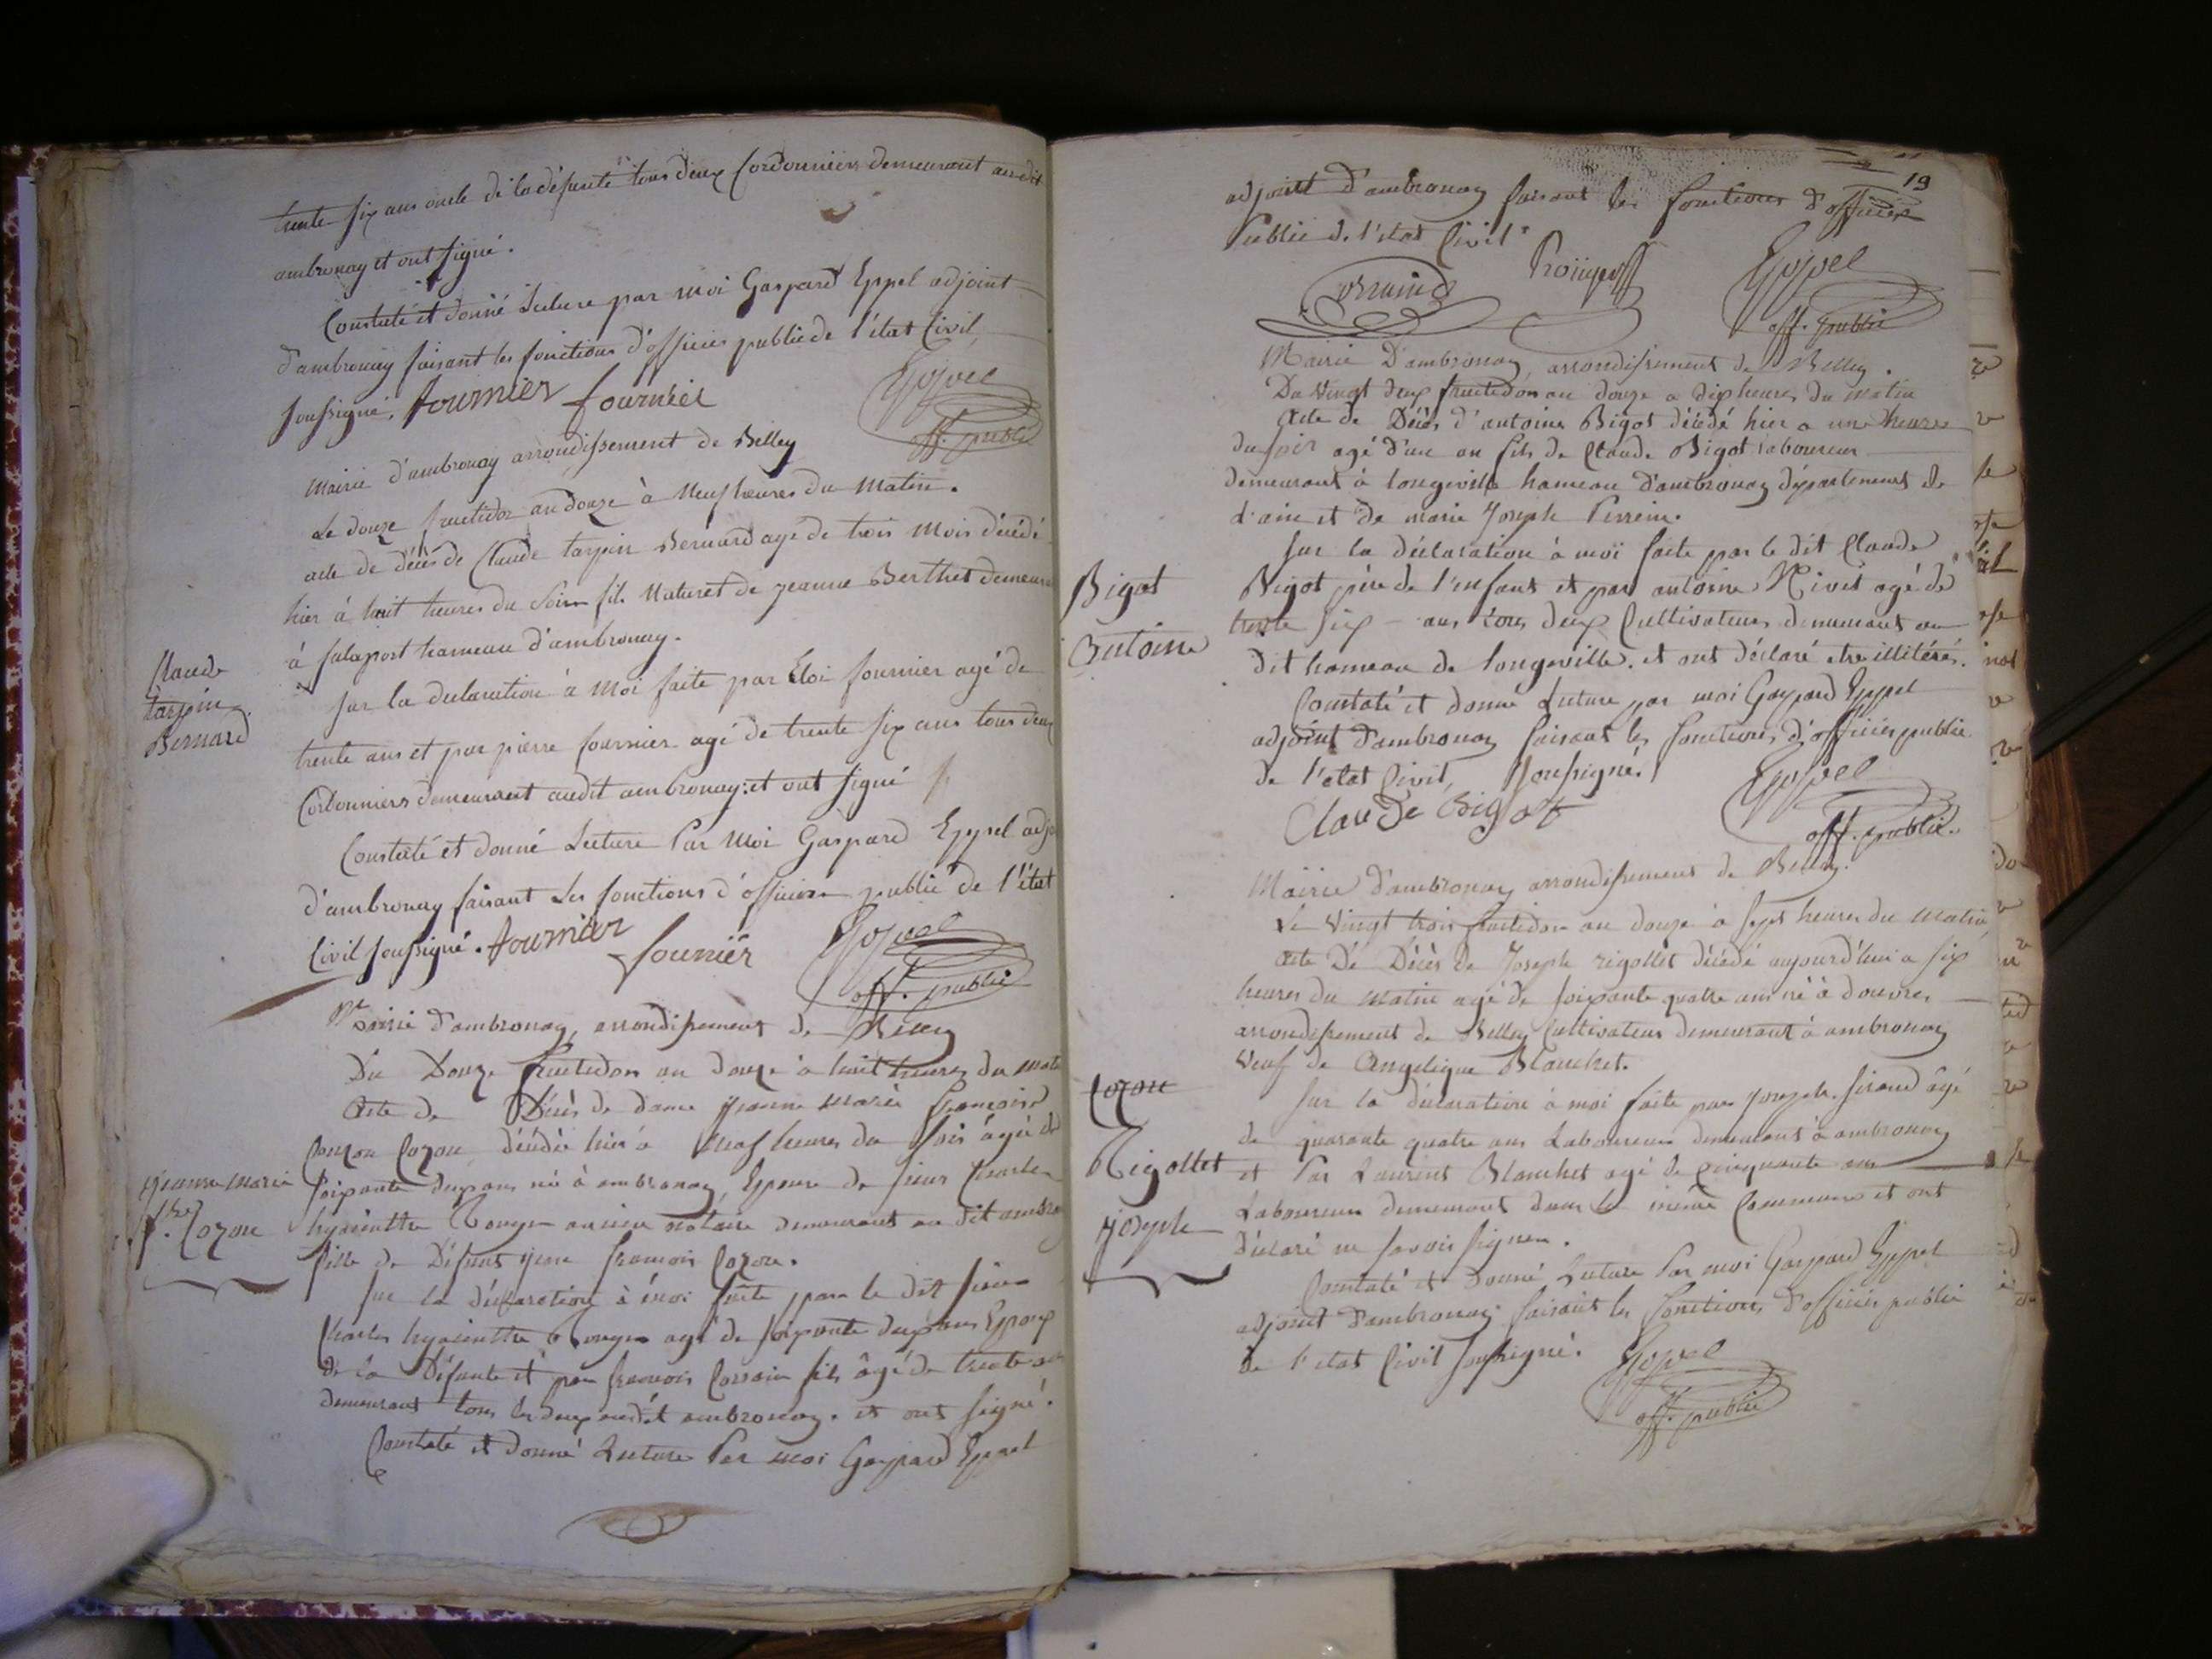 trente-six ans oncle de la défunte tous deux Cordonniers demeurant audit
ambronay et ont signé.
Constaté et donné Lecture par moi Gaspard Eppel adjoint
d'ambronay faisant les fonctions d'officier public de l'état Civil,
soussigné, fournier fournier Eppel
off. public
Mairie d'ambronay arrondissement de Belley
Le douze fructidor an douze à Neuf heures du Matin.
Claude
tarpin
Bernard
acte de décés de Claude tarpin Bernard agé de trois Mois décédé
hier à huit heures du Soir fils Naturel de jeanne Berthet demeurant
à salaport hameau d'ambronay.
sur la declaration à Moi faite par Eloi fournier agé de
trente ans et par pierre fournier agé de trente six ans tous deux
Cordonniers demeurant audit ambronay: et ont signé
Constaté et donné Lecture Par Moi Gaspard Eppel adj
d'ambronay faisant Les fonctions d'officier public de l'état
Civil soussigné. fournier fournier Eppel
off. public
Mairie d'ambronay, arrondissement de Belley
Du Douze fructidor an douze à huit heures du mat
acte de Décès de dame jeanne Marie françoise
Cozon décédée hier à neuf heures du soir agée de
jeanne marie
f.se Cozon
soixante deux ans né à ambronay, Epouse de sieur Charles
hyacinthe ancien notaire demeurant au dit ambro
fille de Défunt jean françois Cozon.
sur la déclaration à moi faite par le dit sieur
Charles hyacinthe agé de soixante deux ans Epoux
de la Défunte et par françois fils âgé de trente
demeurant tous les deux audit ambronay. et ont signé.
Constaté et donné Lecture Par moi Gaspard Eppel
19
adjoint d'ambronay faisant les fonctions d'officier
Public de l'état Civil.
Eppel
off. public
Mairie D'ambronay, arrondissement de Belley.
Du vingt deux fructidor an douze a dix heures du matin
Acte de Décès d'antoine Bigot décédé hier a une heure
du soir agé d'un an fils de Claude Bigot laboureur
demeurant à longeville hameau d'ambronay département de
l'ain et de marie Joseph Perrin.
Bigot
Antoine
sur la déclaration à moi faite par le dit Claude
Bigot père de l'enfant et par antoine Nivet agé de
trente six ans tous deux Cultivateurs demeurant au
dit hameau de longeville. et ont déclaré etre illitéré.
Constaté et donné Lecture par moi Gaspard Eppel
adjoint d'ambronay faisant les fonctions d'officier public
de l'etat Civil, soussigné.
Claude Bigot Eppel
off. public.
Mairie d'ambronay arrondissement de Belley.
Le vingt trois fructidor an douze à sept heures du matin
acte De Décès de Joseph rigollet décédé aujourd'hui a six
heures du matin agé de soixante quatre ans né à douvres
arrondissement de Belley Cultivateur demeurant à ambronay
Veuf de Angelique Blanchet.
Cozon
Rigollet
joseph
sur la déclaration à moi faite par joseph siraud âgé
de quarante quatre ans Laboureur demeurant à ambronay
et Par Laurent Blanchet agé de cinquante ans
Laboureur demeurant dans la même Commune et ont
déclaré ne savoir signer.
Constaté et donné Lecture Par moi Gaspard Eppel
adjoint d'ambronay faisant les fonctions d'officier public
de l'etat Civil soussigné.
Eppel
off. public